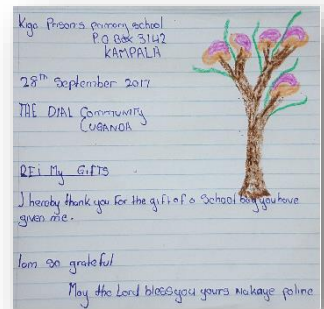 Kigo Prison's primary school
P.O Box 3142
KAMPALA
28th September 2017
THE DIAL Community
(UGANDA
REi My GiFTS
I hereby thank you for the gift of a School bag you have
given me.
Iam so grateful
May the Lord bless you yours Nakaye poline